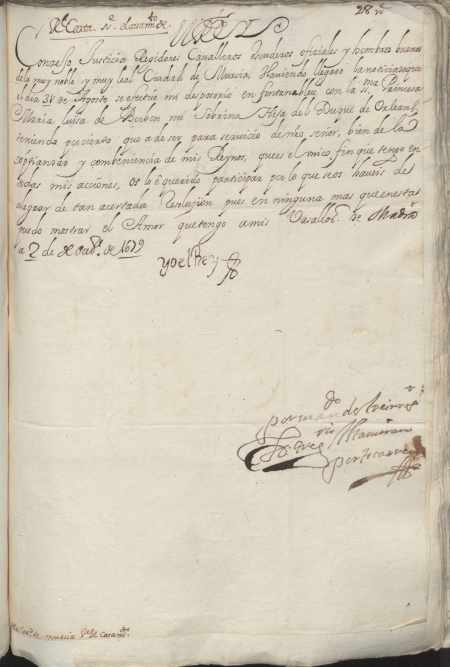 Rl. Carta Sre. el casamto. de
28
El Rey
Concejo Justicia Regidores Cavalleros Jurados oficiales y hombres buenos
dela muy noble y muy leal Ciudad de Murcia, Haviendo llegado la noticia de que
el dia 31 de Agosto se efectuò mi desposorio en fontanableu con la Sa. Princesa
Maria Luisa de Borbon mi Sobrina Hija del Duque de Orleans,
teniendo por cierto que a de ser para servicio de nro señor, bien de la
cristiandad y combeniencia de mis Reynos, que es el unico fin que tengo en
todas mis acciones, os lo è querido participar por lo que se os haveis de
alegrar de tan acertada Resolucion pues en ninguna mas que en esta
pudo mostrar el Amor que tengo a mis Vasallos. De Madrid
a 2 de de 1679
Yo el Rey
por mando. del Rey nro sr.
Portocarrero
de murcia de casamto.